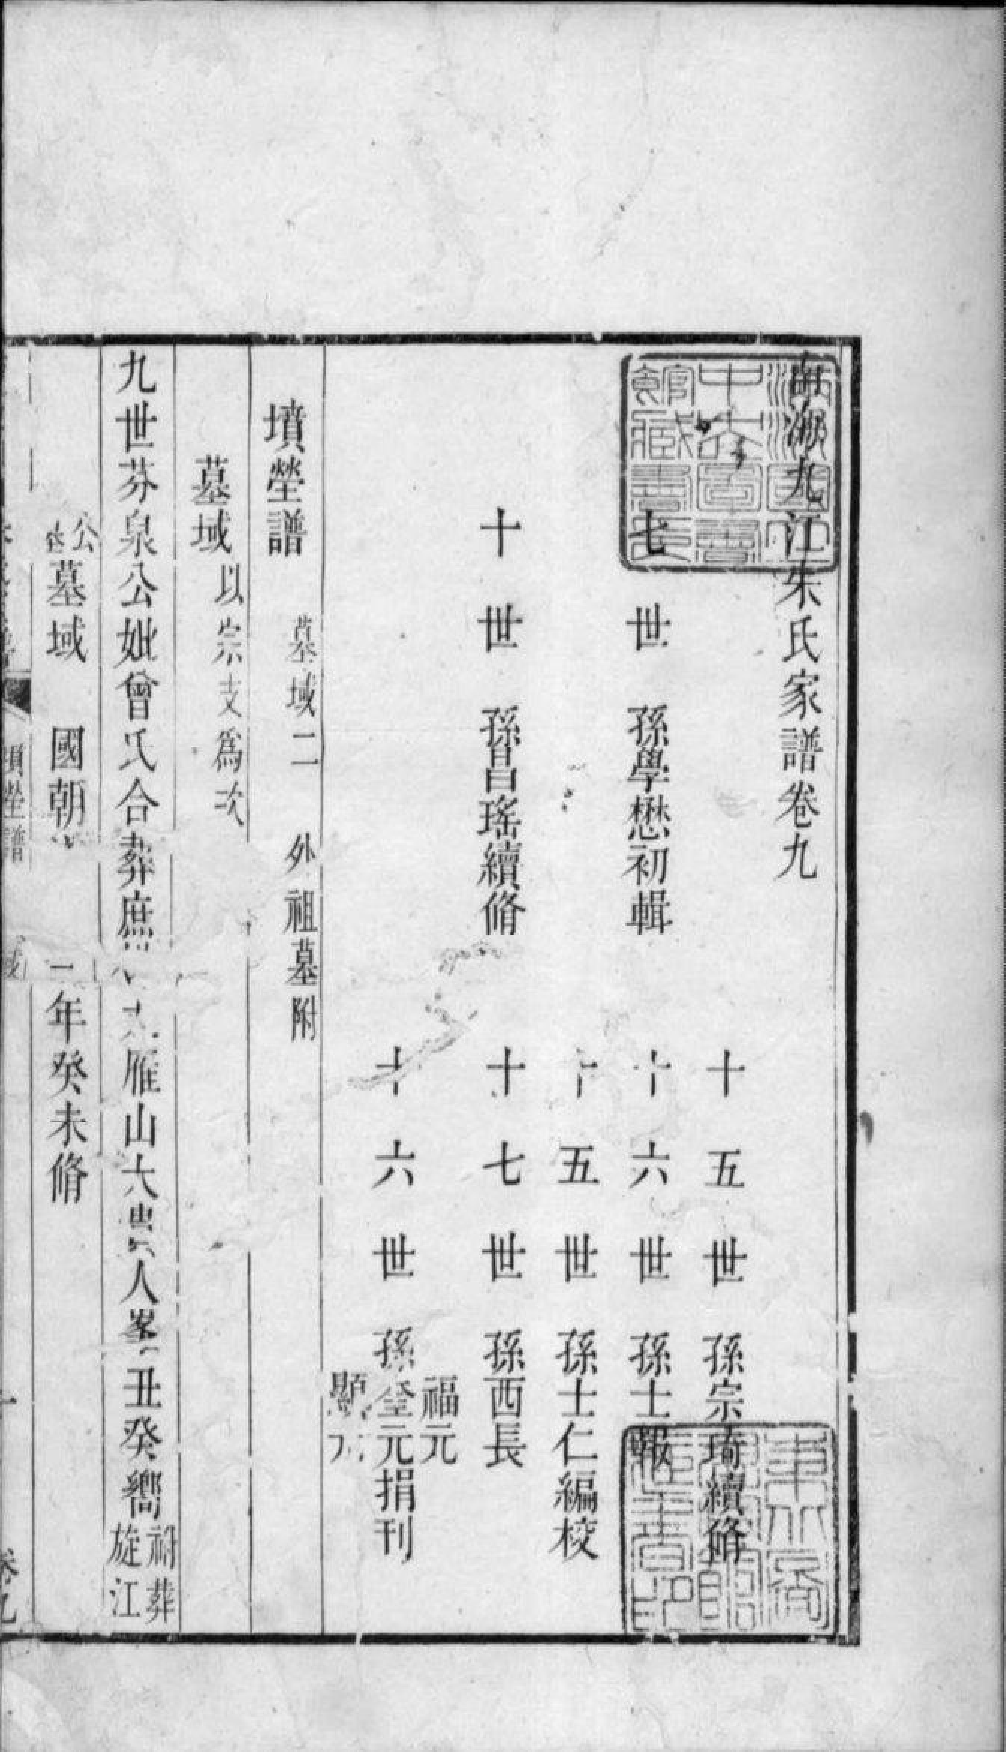 南海九江朱氏家譜卷九
七世孫學懋初輯
十世孫昌瑤續脩
十五世孫宗琦續脩
十六世孫士報
十五世孫士仁編校
十七世孫西長
十六世孫福元
奎元捐刊
顯元
墳塋譜 墓域二 外祖墓附
墓域以宗支為次
九世芬泉公妣曾氏合葬庶 雁山大貴人峯丑癸嚮祔葬
旋江
公墓域 國朝 年癸未脩
墳塋譜 域 一 卷九